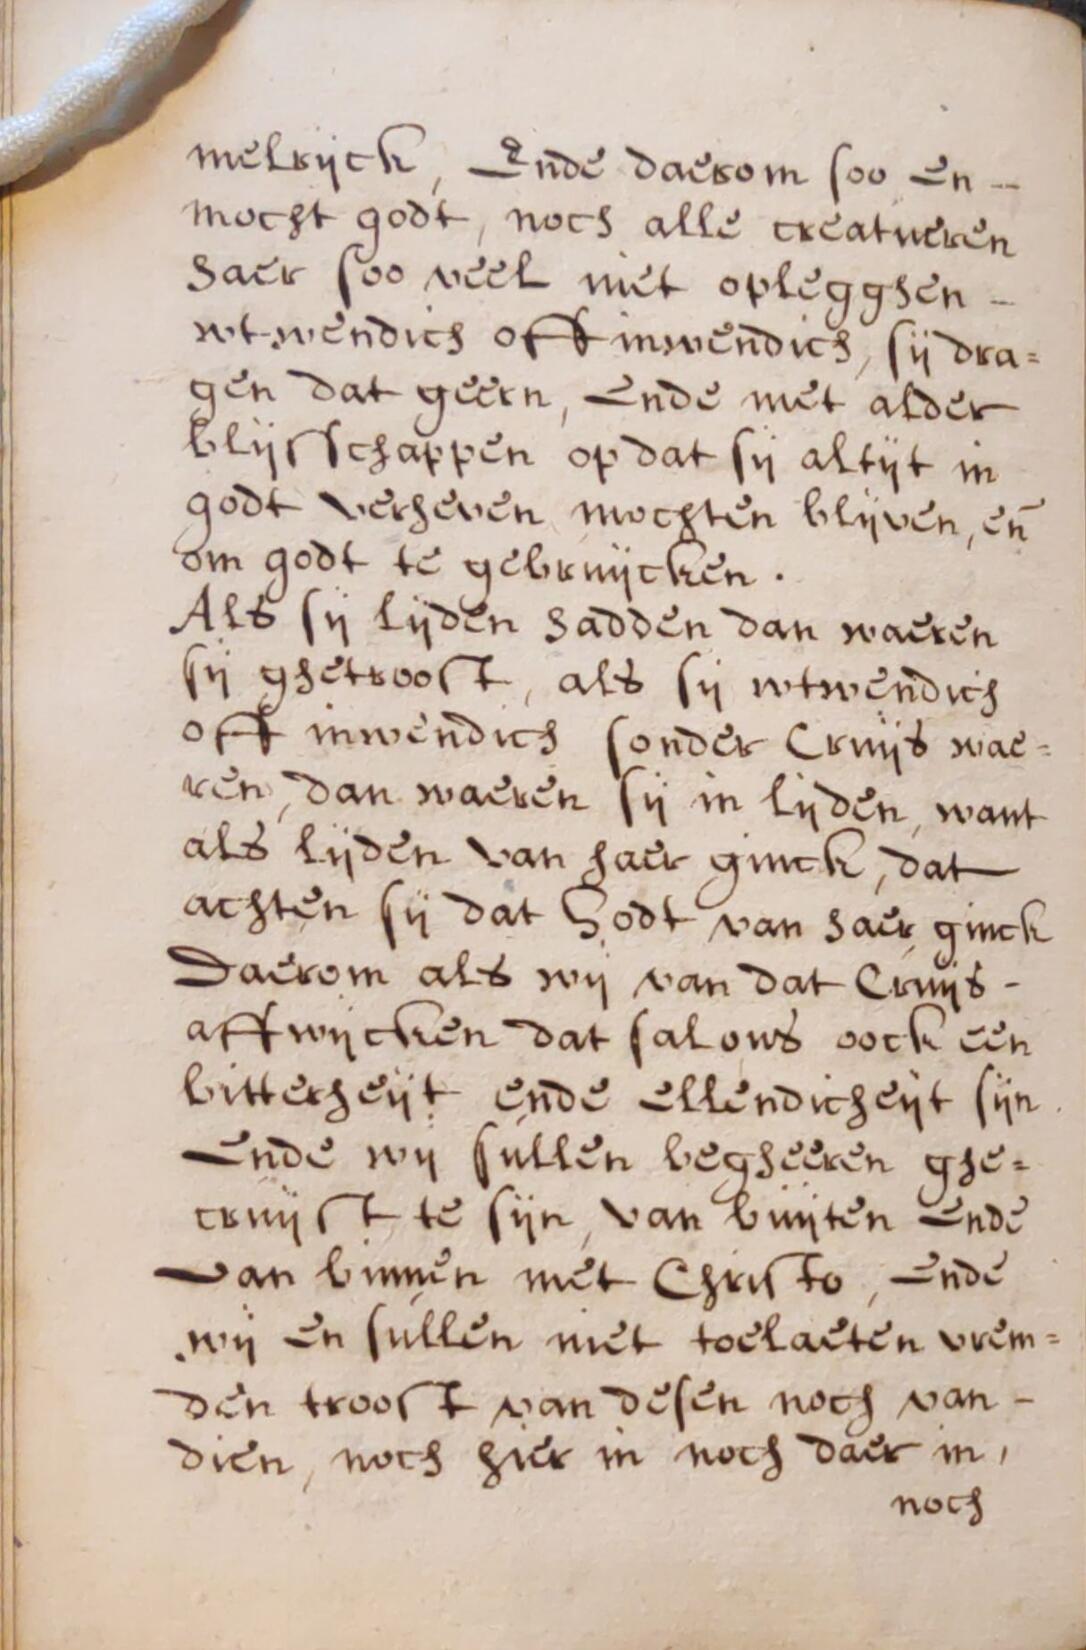 melrijck, Ende daerom soo en -
mocht godt, noch alle creatueren
haer soo veel niet oplegghen -
wt-wendich off inwendich, sij dra=
gen dat geern, Ende met alder
blijsschappen opdat sij altijt in
godt verheven mochten blijven, en̄
om godt te gebruijcken.
Als sij lijden hadden dan waeren
sij ghetroost, als sij wtwendich
off inwendich sonder Cruijs wae=
ren, dan waeren sij in lijden, want
als lijden van haer ginck, dat
achten sij dat Godt van haer ginck
Daerom als wij van dat Cruijs -
affwijcken dat sal ons oock een
bitterheijt ende ellendicheijt sijn.
Ende wij sullen begheeren ghe=
cruijst te sijn, van buijten Ende
van binnen met Christo, Ende
wij en sullen niet toelaeten vrem=
den troost van desen noch van -
dien, noch hier in noch daer in,
noch